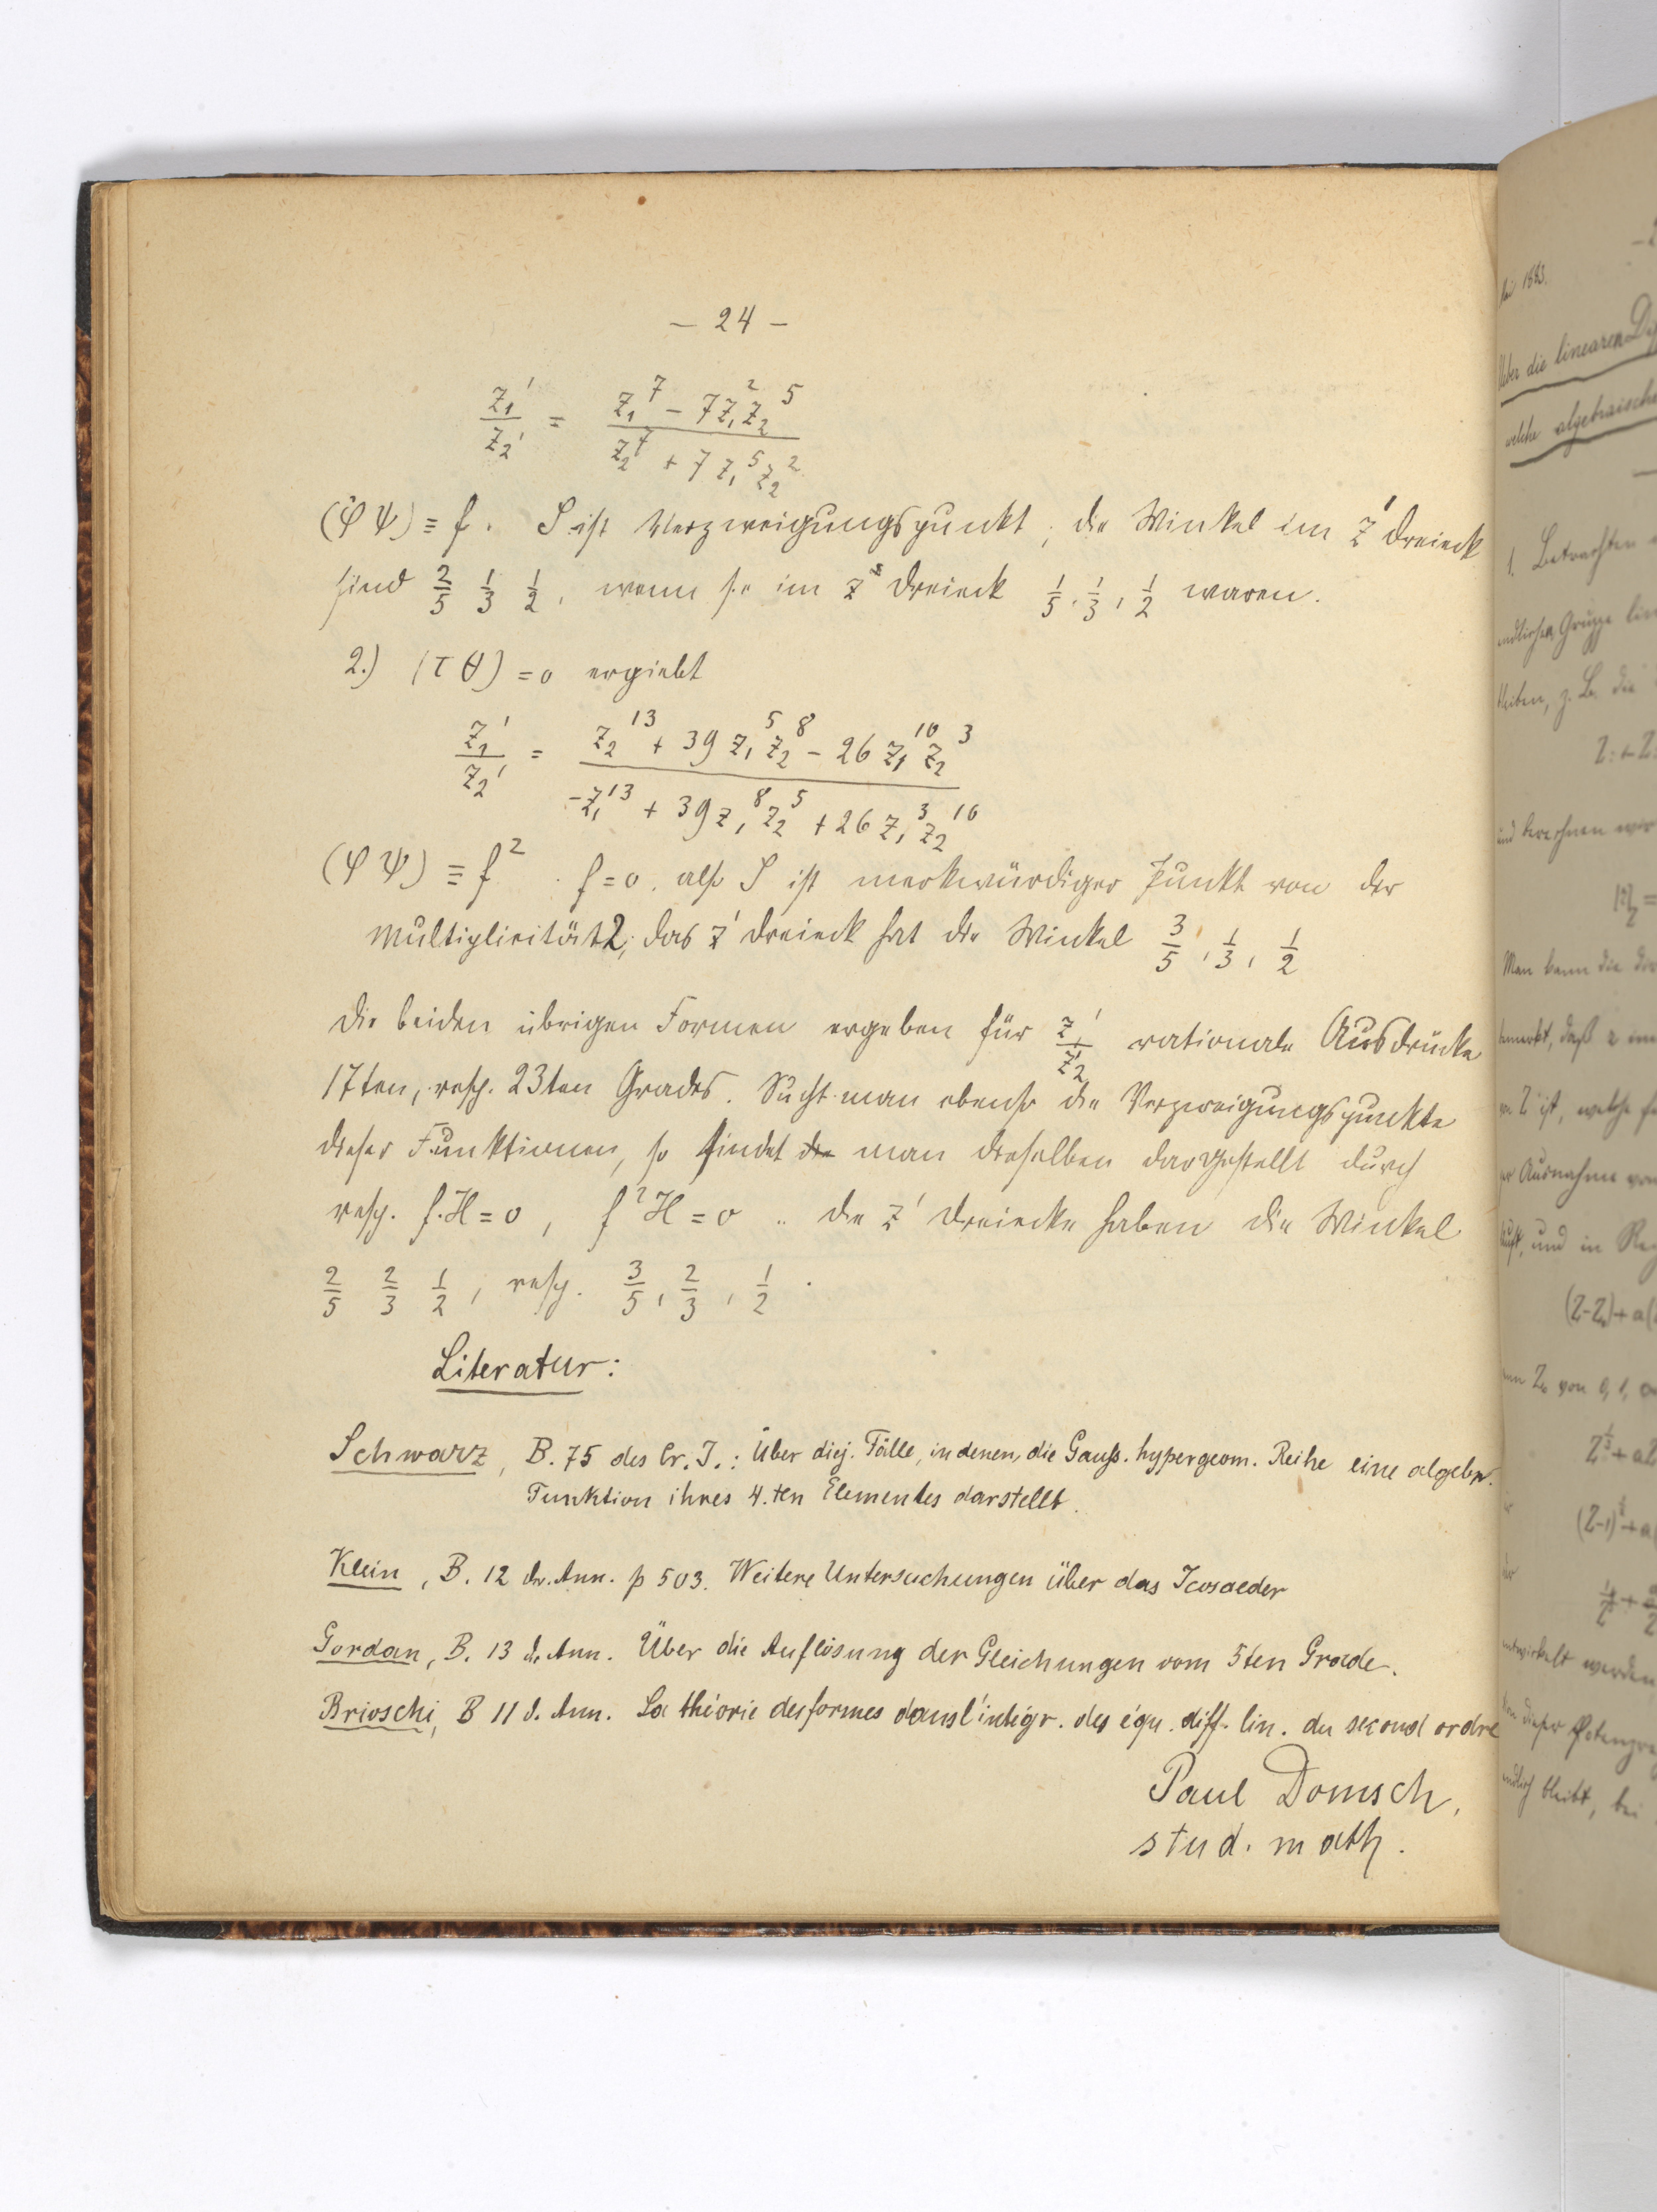 — 24 —
z₁'/z₂' = (z₁⁷ − 7z₁²z₂⁵)/(z₂⁷ + 7z₁⁵z₂²)
(φψ) ≡ f. S ist Verzweigungspunkt; die Winkel im z' Dreieck
sind 2/5 1/3 1/2, wenn sie im z Dreieck 1/5, 1/3, 1/2 waren.
2.) (TΘ) = 0 ergiebt
z₁'/z₂' = (z₂¹³ + 39z₁⁵z₂⁸ − 26z₁¹⁰z₂³)/(−z₁¹³ + 39z₁⁸z₂⁵ + 26z₁³z₂¹⁰)
(φψ) ≡ f². f=0, also S ist merkwürdiger Punkt von der
Multiplicität 2; das z' Dreieck hat die Winkel 3/5, 1/3, 1/2
Die beiden übrigen Formen ergeben für z₁'/z₂' rationale Ausdrücke
17ten, resp. 23ten Grades. Sucht man ebenso die Verzweigungspunkte
dieser Funktionen, so findet die man dieselben dargestellt durch
resp. f.H = 0, f²H = 0.. die z' Dreiecke haben die Winkel
2/5 2/3 1/2, resp. 3/5, 2/3, 1/2.
Literatur:
Schwarz, B. 75 des Cr. J.: Über diej. Fälle, in denen die Gauß. hypergeom. Reihe eine algebr.
Funktion ihres 4.ten Elementes darstellt.
Klein, B. 12 der Ann. p 503. Weitere Untersuchungen über das Icosaeder
Gordan, B. 13 d. Ann. Über die Auflösung der Gleichungen vom 5ten Grade.
Brioschi, B 11 d. Ann. La théorie des formes dans l'intégr. des équ. diff. lin. du second ordre
Paul Domsch,
stud. math.
1883.
Ueber die linearen
welche algebraische
1. Betrachten
endlichen Gruppe
bleiben, z. B. die
und berechnen wir
Man kann die
bemerkt, daß
ist, welche
Ausnahme von
und in
von 0, 1,
entwickelt werden
dieser
bleibt, bei